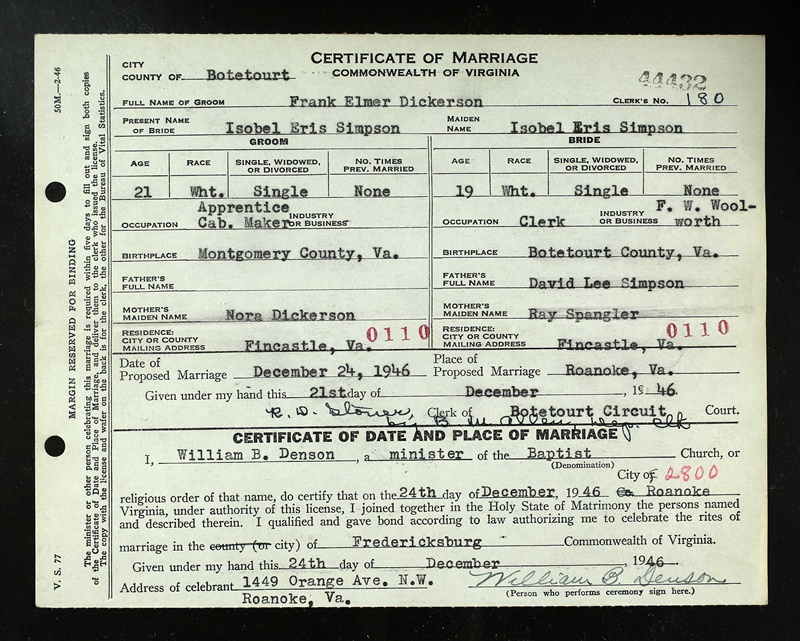 CERTIFICATE OF MARRIAGE
COMMONWEALTH OF VIRGINIA
CITY
COUNTY OF Botetourt
44432
FULL NAME OF GROOM Frank Elmer Dickerson CLERK'S NO. 180
PRESENT NAME OF BRIDE Isobel Eris Simpson MAIDEN NAME Isobel Eris Simpson
GROOM BRIDE
AGE RACE SINGLE, WIDOWED, OR DIVORCED NO. TIMES PREV. MARRIED AGE RACE SINGLE, WIDOWED, OR DIVORCED NO. TIMES PREV. MARRIED
21 Wht. Single None 19 Wht. Single None
OCCUPATION Apprentice Cab. Maker INDUSTRY OR BUSINESS OCCUPATION Clerk INDUSTRY OR BUSINESS F. W. Wool-worth
BIRTHPLACE Montgomery County, Va. BIRTHPLACE Botetourt County, Va.
FATHER'S FULL NAME FATHER'S FULL NAME David Lee Simpson
MOTHER'S MAIDEN NAME Nora Dickerson MOTHER'S MAIDEN NAME Ray Spangler
RESIDENCE: CITY OR COUNTY MAILING ADDRESS 0110 Fincastle, Va. RESIDENCE: CITY OR COUNTY MAILING ADDRESS 0110 Fincastle, Va.
Date of Proposed Marriage December 24, 1946 Place of Proposed Marriage Roanoke, Va.
Given under my hand this 21st day of December, 1946.
R. D. Stoner, Clerk of Botetourt Circuit Court.
by B. M. Allen, Dep. Clk
CERTIFICATE OF DATE AND PLACE OF MARRIAGE
I, William B. Denson, a minister of the Baptist Church, or
(Denomination)
City of 2800
religious order of that name, do certify that on the 24th day of December, 1946 Co. Roanoke
Virginia, under authority of this license, I joined together in the Holy State of Matrimony the persons named
and described therein. I qualified and gave bond according to law authorizing me to celebrate the rites of
marriage in the county (or city) of Fredericksburg Commonwealth of Virginia.
Given under my hand this 24th day of December, 1946.
Address of celebrant 1449 Orange Ave. N.W. William B. Denson
Roanoke, Va. (Person who performs ceremony sign here.)
V. S. 77
50M.—2-46
MARGIN RESERVED FOR BINDING
The minister or other person celebrating this marriage is required within five days to fill out and sign both copies
of the Certificate of Date and Place of Marriage, and deliver them to the clerk who issued the license.
The copy with the license and wafer on the back is for the clerk, the other for the Bureau of Vital Statistics.